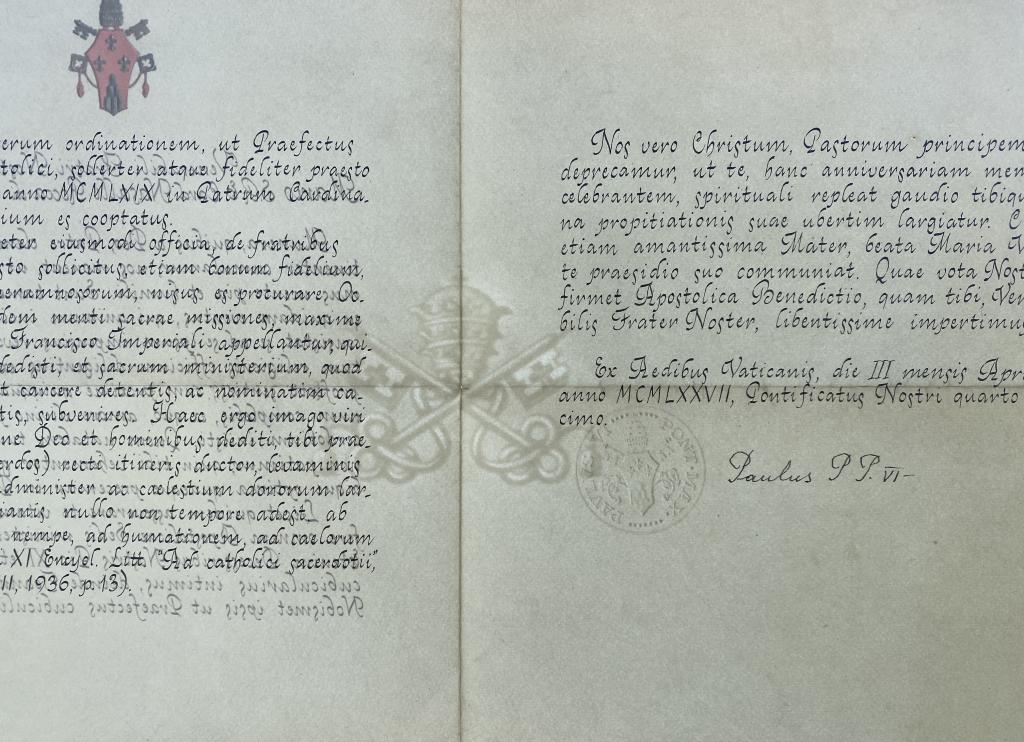 erum ordinationem, ut Praefectus
tolici, sollerter atque fideliter praesto
anno MCMLXIX in Patrum Cardina-
ium es cooptatus.
eter eiusmodi officia, de fratribus
sto sollicitus, etiam bonum fidelium,
erumnosorum, nisus es procurare. Oo-
dem menti sacrae missiones, maxime
Francisco Imperiali appellantur, qui-
dedisti, et sacrum ministerium, quod
t carcere detentis, ac nominatim ca-
tis, subvenires. Haec ergo imago viri
ne Deo et hominibus dediti tibi prae-
erdos) recti itineris ductor, levaminis
dminister ac caelestium donorum lar-
ianis nullo non tempore adest ab
nempe, ad humationem, ad caelorum
XI Encycl. Litt. "Ad catholici sacerdotii,"
II, 1936, p. 13).
Nos vero Christum, Pastorum principem
deprecamur, ut te, hanc anniversariam mem
celebrantem, spirituali repleat gaudio tibiqu
na propitiationis suae ubertim largiatur. C
etiam amantissima Mater, beata Maria V
te praesidio suo communiat. Quae vota Nost
firmet Apostolica Benedictio, quam tibi, Ven
bilis Frater Noster, libentissime impertimus
Ex Aedibus Vaticanis, die III mensis Apri
anno MCMLXXVII, Pontificatus Nostri quarto
cimo.
Paulus P P. VI-
PAVLVS VI PONT. MAX.